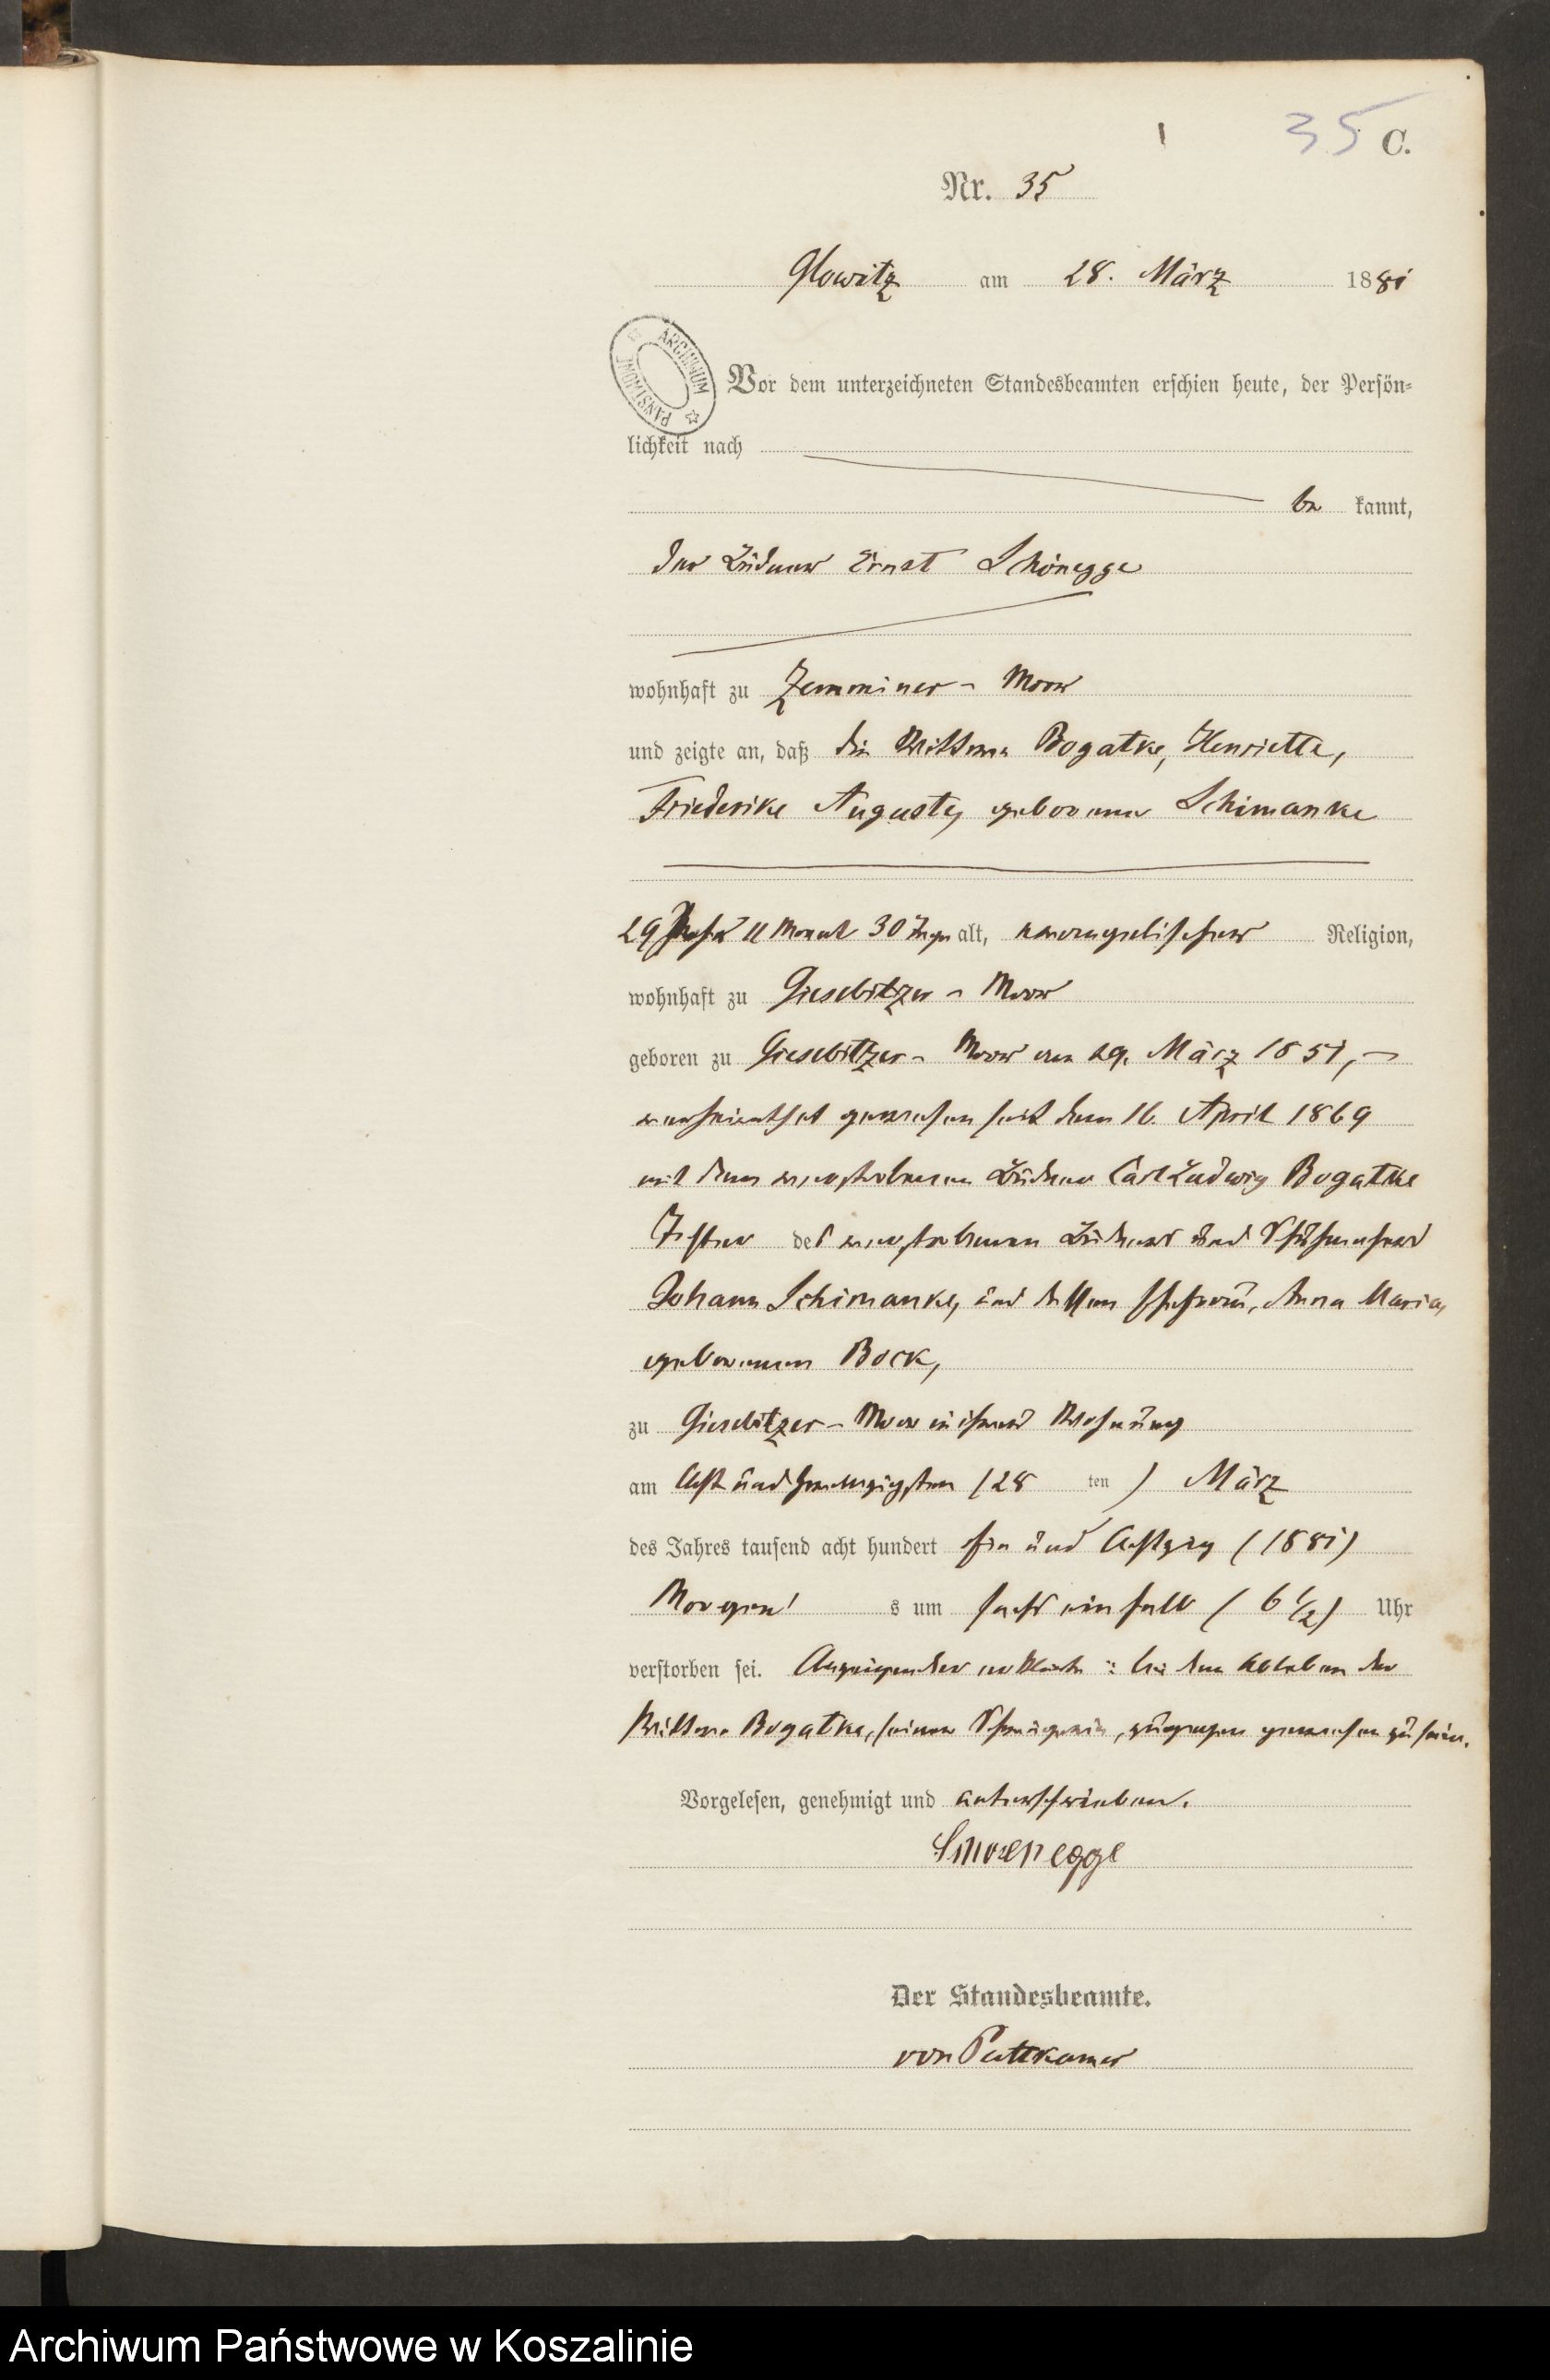 35 C.
Nr. 35
Glowitz am 28. März 1881
ARCHIWUM
PAŃSTWOWE
Vor dem unterzeichneten Standesbeamten erschien heute, der Persön-
lichkeit nach
be kannt,
der Büdner Ernst Schönegge
wohnhaft zu Zemminer-Moor
und zeigte an, daß die Wittwe Bogatke, Henriette,
Friederike Auguste, geborene Schimanke
29 Jahr 11 Monat 30 Tage alt, evangelischer Religion,
wohnhaft zu Giesebitzer-Moor
geboren zu Giesebitzer-Moor am 29. März 1851,
verheirathet gewesen seit dem 16. April 1869
mit dem verstorbenen Büdner Carl Ludwig Bogatke
Tochter des verstorbenen Büdners und Schuhmachers
Johann Schimanke, und dessen Ehefrau, Anna Maria,
geborenen Bock,
zu Giesebitzer-Moor in ihrer Wohnung
am Acht und zwanzigsten (28 ten) März
des Jahres tausend acht hundert ein und Achtzig (1881)
Morgen s um sechs ein halb (6 1/2) Uhr
verstorben sei. Anzeigender erklärte: bei dem Ableben der
Wittwe Bogatke, seiner Schwägerin, zugegen gewesen zu sein.
Vorgelesen, genehmigt und unterschrieben.
Schoenegge
Der Standesbeamte.
von Puttkamer
Archiwum Państwowe w Koszalinie